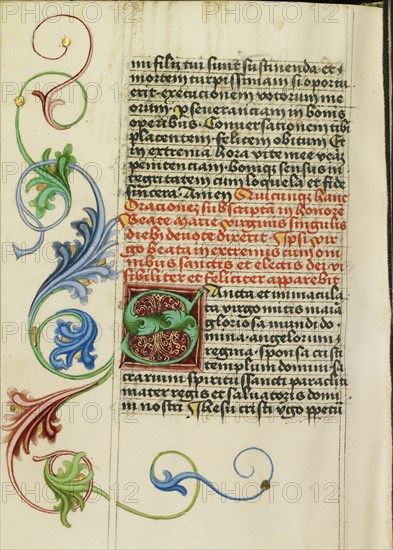 mi filij tui sunt sustinenda et
mortem turpissimam si oportu
erit executionem votorum me
orum perseveranciam in bonis
operibus Conversationem tibi
placentem felicem obitum Et
in extremia hora vite mee veaz
penitenciam bonuique sensus in
tegritatem cum loquela et fide
sincera Amen Quicunque hanc
Orationez subscriptam in honore
Beate Marie virginis singulis
diebus devote dixerit Ipsi vir
go beata in extremis cum om
nibus sanctis et electis dei vi
sibiliter et feliciter apparebit
SAncta et immacula
ta virgo mitis maia
gloriosa mundi do
mina angelorum
regina sponsa cristi
templum domini sa
crarium spiritus sancti paracliti
mater regis et salvatoris domi
ni nostri Jhesu cristi virgo perpetu
PHOTO12